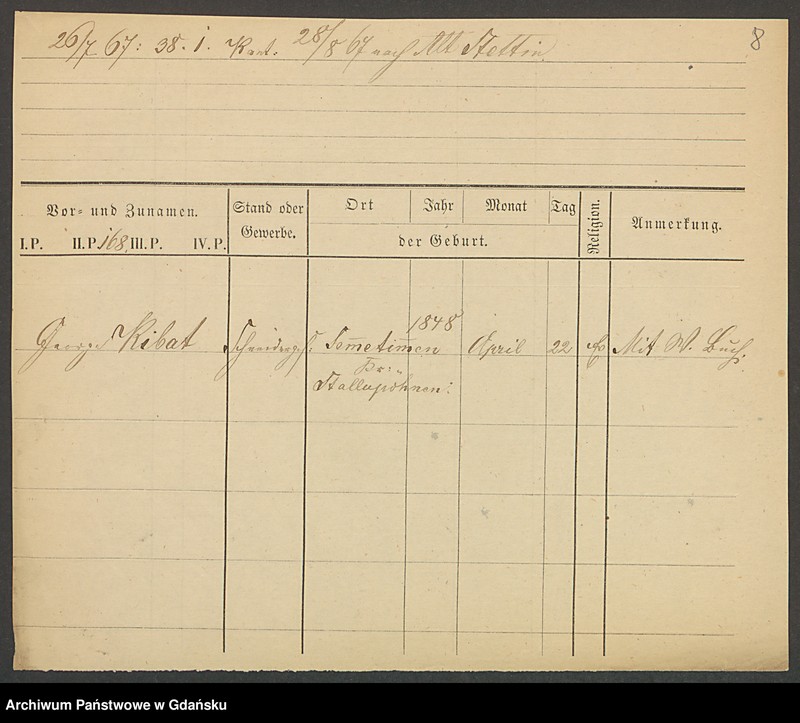 26/7 67: 38. 1. Kart. 28/8 67 nach Alt Stettin.
8
Vor- und Zunamen.
Stand oder Gewerbe.
Ort Jahr Monat Tag
der Geburt.
Religion.
Anmerkung.
I.P. II.P. 168. III.P. IV.P.
1848
George Kibat Schneiderges. Sometimen April 22 Ev Mit W. Buch.
Kr:
Stallupöhnen:
Archiwum Państwowe w Gdańsku